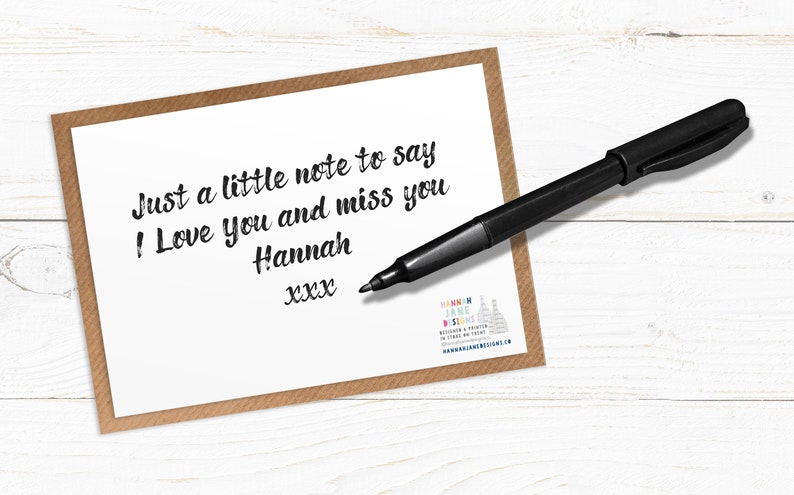 Just a little note to say
I Love you and miss you
Hannah
xxx
HANNAH
JANE
DESIGNS
DESIGNED & PRINTED
IN STOKE ON TRENT
HANNAHJANEDESIGNS.CO